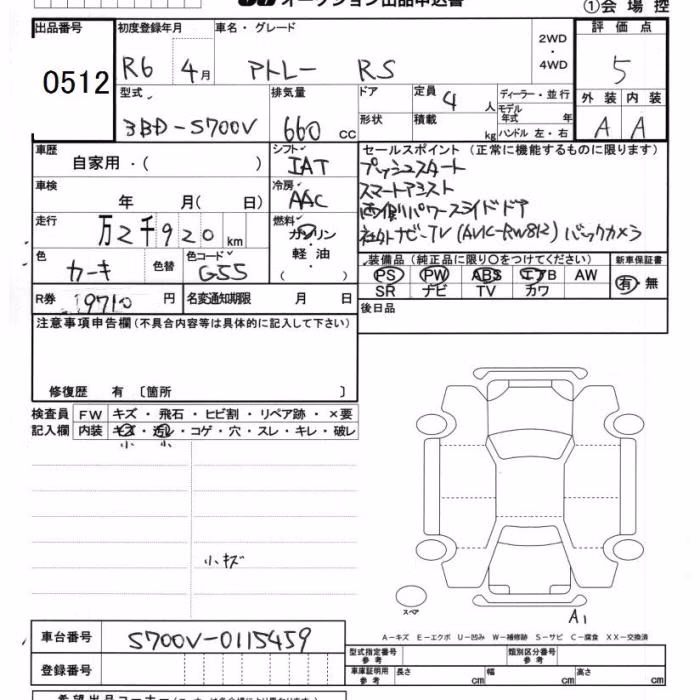 オークション出品申込書
①会場控
出品番号
0512
初度登録年月
R6 4月
車名・グレード
アトレー RS
2WD
・
4WD
評価点
5
型式
3BD-S700V
排気量
660 cc
ドア
形状
定員
4 人
積載
kg
ディーラー・並行
モデル年式 年
ハンドル 左・右
外装 内装
A A
車歴
自家用・( )
シフト
IAT
車検
年 月( 日)
冷房
AAC
走行
万2千920km
燃料
ガソリン
軽油
( )
色
カーキ
色替
色コード
G55
R券
19710円
名変通知期限 月 日
セールスポイント(正常に機能するものに限ります)
プッシュスタート
スマートアシスト
両側パワースライドドア
社外ナビ-TV(AVIC-RW812) バックカメラ
装備品(純正品に限り○をつけてください)
PS PW ABS エアB AW
SR ナビ TV カワ
新車保証書
有・無
後日品
注意事項申告欄(不具合内容等は具体的に記入して下さい)
修復歴 有 〔箇所 〕
検査員記入欄
FW キズ・飛石・ヒビ割・リペア跡・×要
内装 キズ・汚れ・コゲ・穴・スレ・キレ・破レ
小 小
小キズ
スペア
A1
A-キズ E-エクボ U-凹み W-補修跡 S-サビ C-腐食 XX-交換済
車台番号
S700V-0115459
登録番号
型式指定番号
参考
類別区分番号
参考
車庫証明用
参考
長さ cm 幅 cm 高さ cm
希望出品コーナー